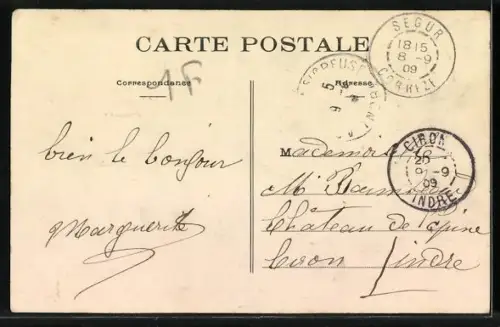 CARTE POSTALE
Correspondance
Adresse
1F
SEGUR
18 15
8 -9
09
CORRÈZE
CIRON
9 -9
09
INDRE
bien le bonjour
Marguerite
Mademoiselle
M.
Château de l'Epine
Ciron Indre